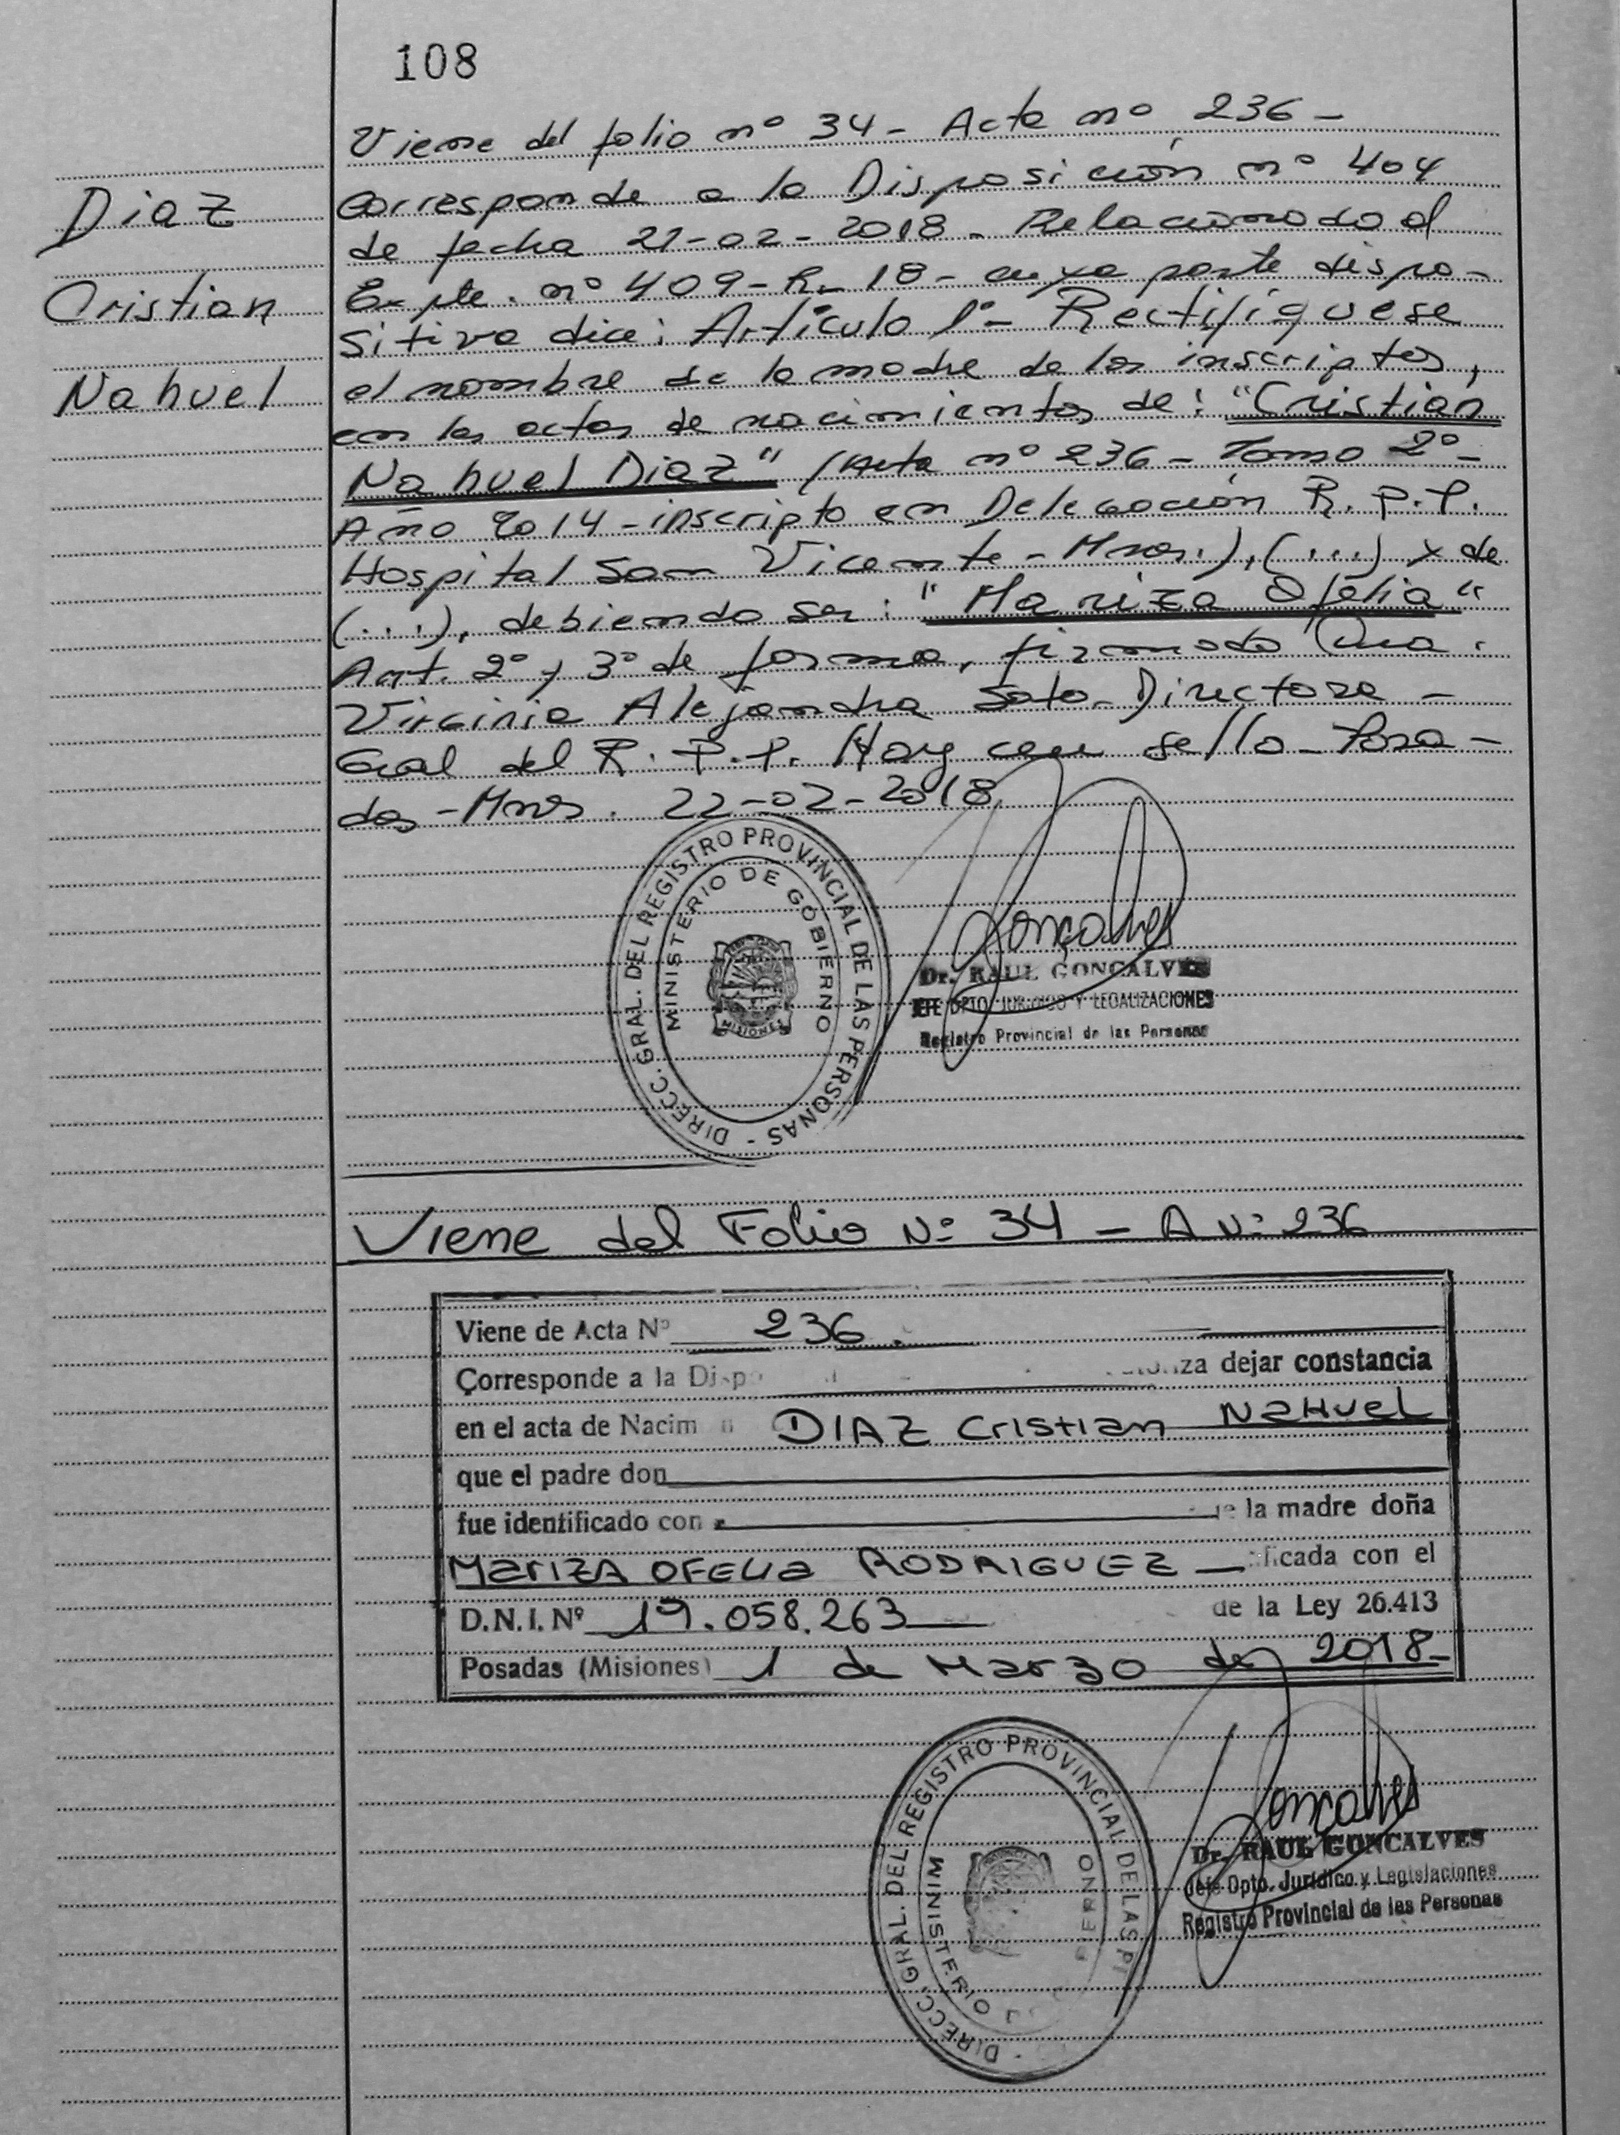 108
Diaz
Cristian
Nahuel
Viene del folio nº 34 - Acta nº 236 -
Corresponde a la Disposición nº 404
de fecha 21-02-2018 - Relacionado al
Expte. nº 409-R-18 - cuya parte dispo-
sitiva dice: Artículo 1º- Rectifíquese
el nombre de la madre de los inscriptos,
en las actas de nacimientos de: "Cristian
Nahuel Diaz" (Acta nº 236 - Tomo 2º-
Año 2014 - inscripto en Delegación R.P.P.
Hospital San Vicente - Mnes.), (...) y de
(...), debiendo ser: "Mariza Ofelia"
Art. 2º y 3º de forma, firmado Dra.
Virginia Alejandra Soto - Directora -
Gral del R.P.P. Hay un sello - Posa-
das - Mnes. 22-02-2018
DIRECC. GRAL. DEL REGISTRO PROVINCIAL DE LAS PERSONAS -
MINISTERIO DE GOBIERNO
MISIONES
Goncalves
Dr. RAUL GONCALVES
JEFE DPTO JURIDICO Y LEGALIZACIONES
Registro Provincial de las Personas
Viene del Folio Nº 34 - A Nº 236
Viene de Acta Nº 236.
Corresponde a la Disp dejar constancia
en el acta de Nacim DIAZ Cristian NaHuel
que el padre don
fue identificado con la madre doña
MarIZA OFELIa RODRIGUEZ ficada con el
D.N.I. Nº 19.058.263 de la Ley 26.413
Posadas (Misiones) 1 de Marzo de 2018-
DIRECC. GRAL. DEL REGISTRO PROVINCIAL DE LAS
MINISTERIO
Goncalves
Dr. RAUL GONCALVES
Jefe Dpto. Jurídico y Legislaciones
Registro Provincial de las Personas